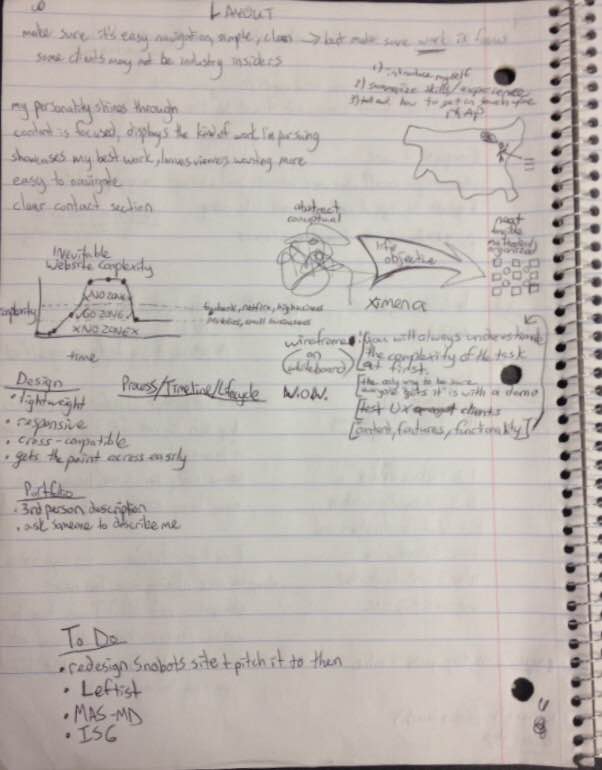 LAYOUT
make sure it's easy navigation, simple, clean → but make sure work is focus
some clients may not be industry insiders
1) introduce myself
2) summarize skills/experience
3) how to get in touch
MAP
my personality shines through
content is focused, displays the kind of work I'm pursuing
showcases my best work, leaves viewers wanting more
easy to navigate
clear contact section
abstract
conceptual
life
objective
neat
tangible
organized
ximena
Inevitable
Website Complexity
NO ZONE
GO ZONE
X NO ZONE X
complexity
time
small businesses
wireframe
(on whiteboard)
W.O.W.
"you will always underestimate
the complexity of the task
at first.
[the only way to be sure
everyone "gets it" is with a demo
[test UX clients
[content, features, functionality]
Design
• lightweight
• responsive
• cross-compatible
• gets the point across easily
Process/Timeline/Lifecycle
Portfolio
• 3rd person description
• ask someone to describe me
To Do
• redesign Snobots site + pitch it to then
• Leftist
• MAS-MD
• ISG